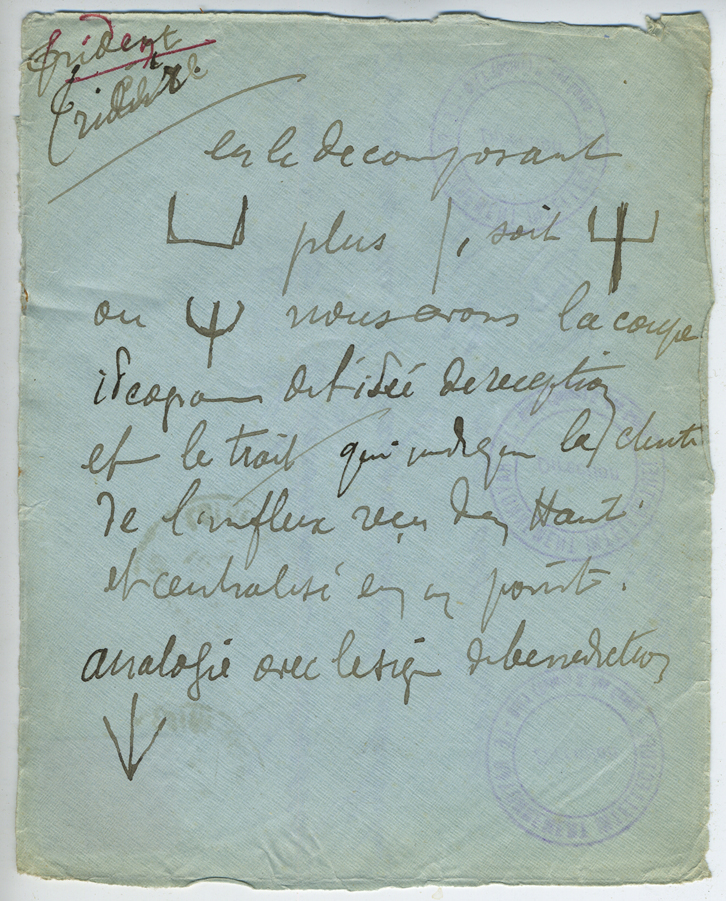 Trident
Trident
en le decomposant
plus |, soit
ou nous avons la coupe
de l'idée de reception
et le trait qui indique la chute
de l'influx reçu d'en Haut
et centralisé en un point.
analogie avec le signe de benediction